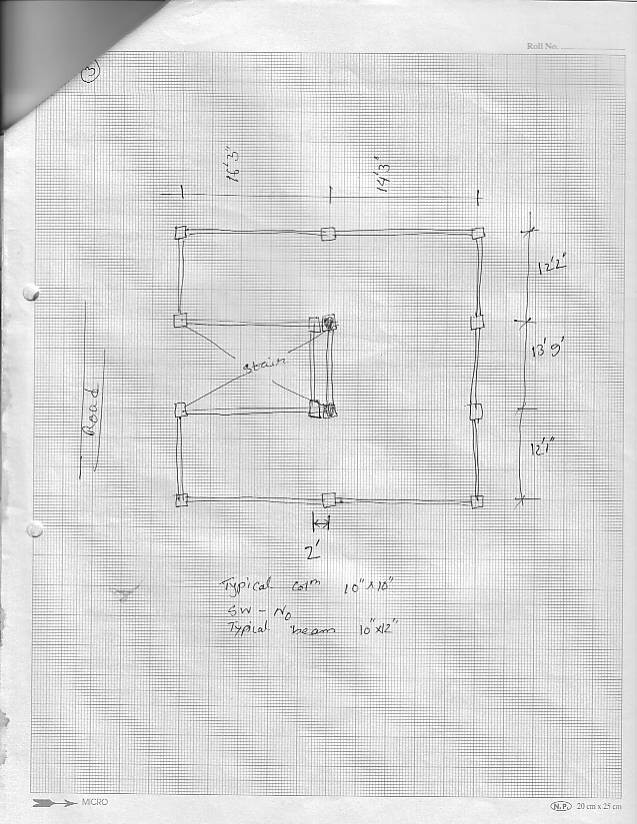 Roll No.
3
16'3"
14'3"
12'2"
stair
13'9"
Road
12'1"
2'
Typical colm 10"x10"
SW - No
Typical beam 10"x12"
MICRO
N.P. 20 cm x 25 cm